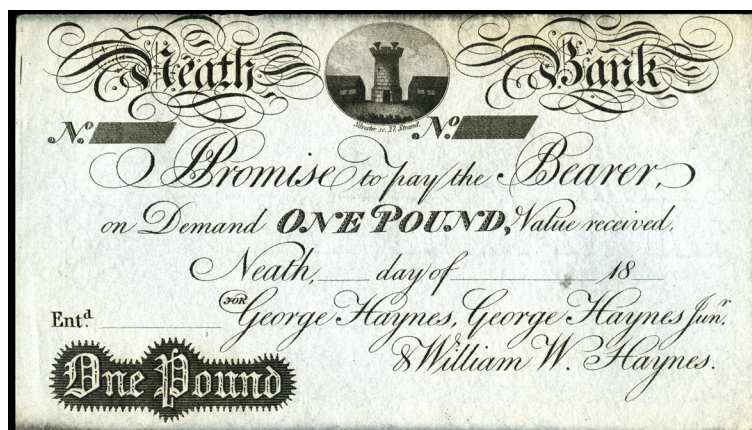 Neath Bank
Silvester sc. 27, Strand.
No No
I Promise to pay the Bearer,
on Demand ONE POUND, Value received.
Neath, day of 18
FOR George Haynes, George Haynes Junr.
Entd.
& William W. Haynes.
One Pound